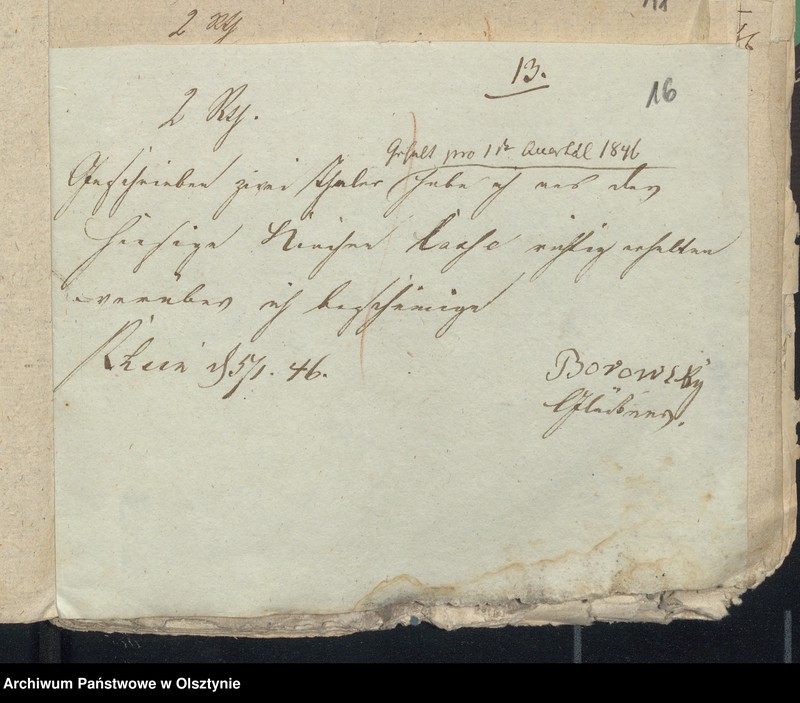 11
2 Rthlr
13.
16
2 Rthlr.
Gehalt pro 1te Quartal 1846
Geschrieben zwei Thaler habe ich aus der
hiesige Kirchen Casse richtig erhalten
worüber ich bescheinige
Rhein d 5/1. 46.
Borowsky
Glöckner.
Archiwum Państwowe w Olsztynie